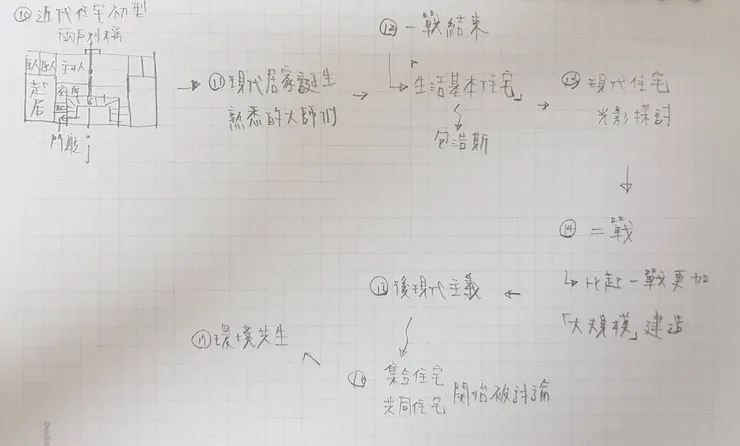 ⑩近代住宅初型
兩戶對稱
臥 主臥
起居
廚房
門廳
⑪現代居家誕生
熟悉的大師們
⑫一戰結束
「生活基本住宅」
包浩斯
⑬現代住宅
光影探討
⑭二戰
比起一戰更加
「大規模」建造
⑮後現代主義
⑯集合住宅
共同住宅 開始被討論
⑰環境共生